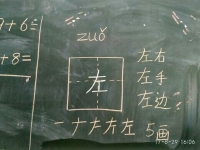 9+6=
+8=
zuǒ
左
左右
左手
左边
一ナ左左左 5画
17-8-29 16:26